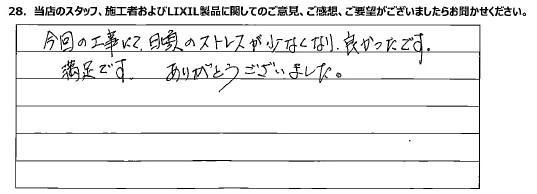 28. 当店のスタッフ、施工者およびLIXIL製品に関してのご意見、ご感想、ご要望がございましたらお聞かせください。
今回の工事にて、日頃のストレスが少なくなり、良かったです。
満足です。 ありがとうございました。